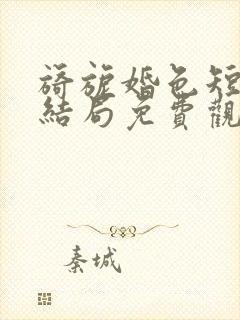 旖旎婚色短
結局免費觀
秦城